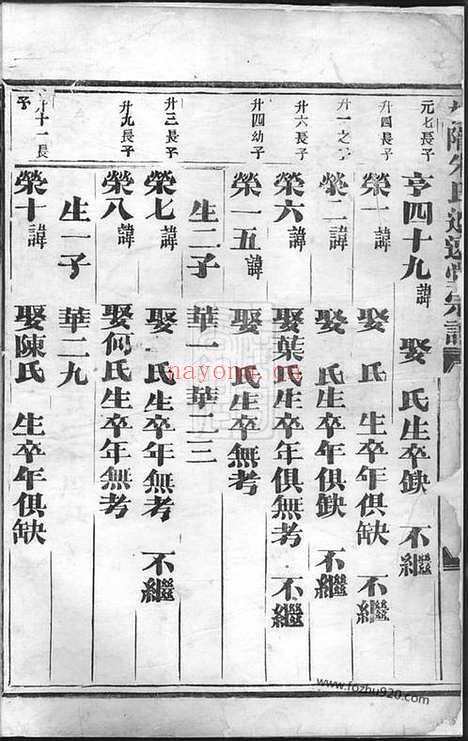 朱氏
宗譜
元七長子
亨四十九諱 娶 氏生卒缺 不繼
升四長子
榮一諱 娶 氏 生卒年俱缺 不繼
升一之子
榮二諱 娶 氏生卒年俱缺 不繼
升六長子
榮六諱 娶葉氏生卒年俱無考 不繼
升四幼子
榮一五諱 娶 氏生卒無考
生二子 華一 華二三
升三長子
榮七諱 娶 氏生卒年無考 不繼
升九長子
榮八諱 娶何氏生卒年無考
生一子 華二九
十一長子
榮十諱 娶陳氏 生卒年俱缺
nayona.cn
www.fozhu920.com